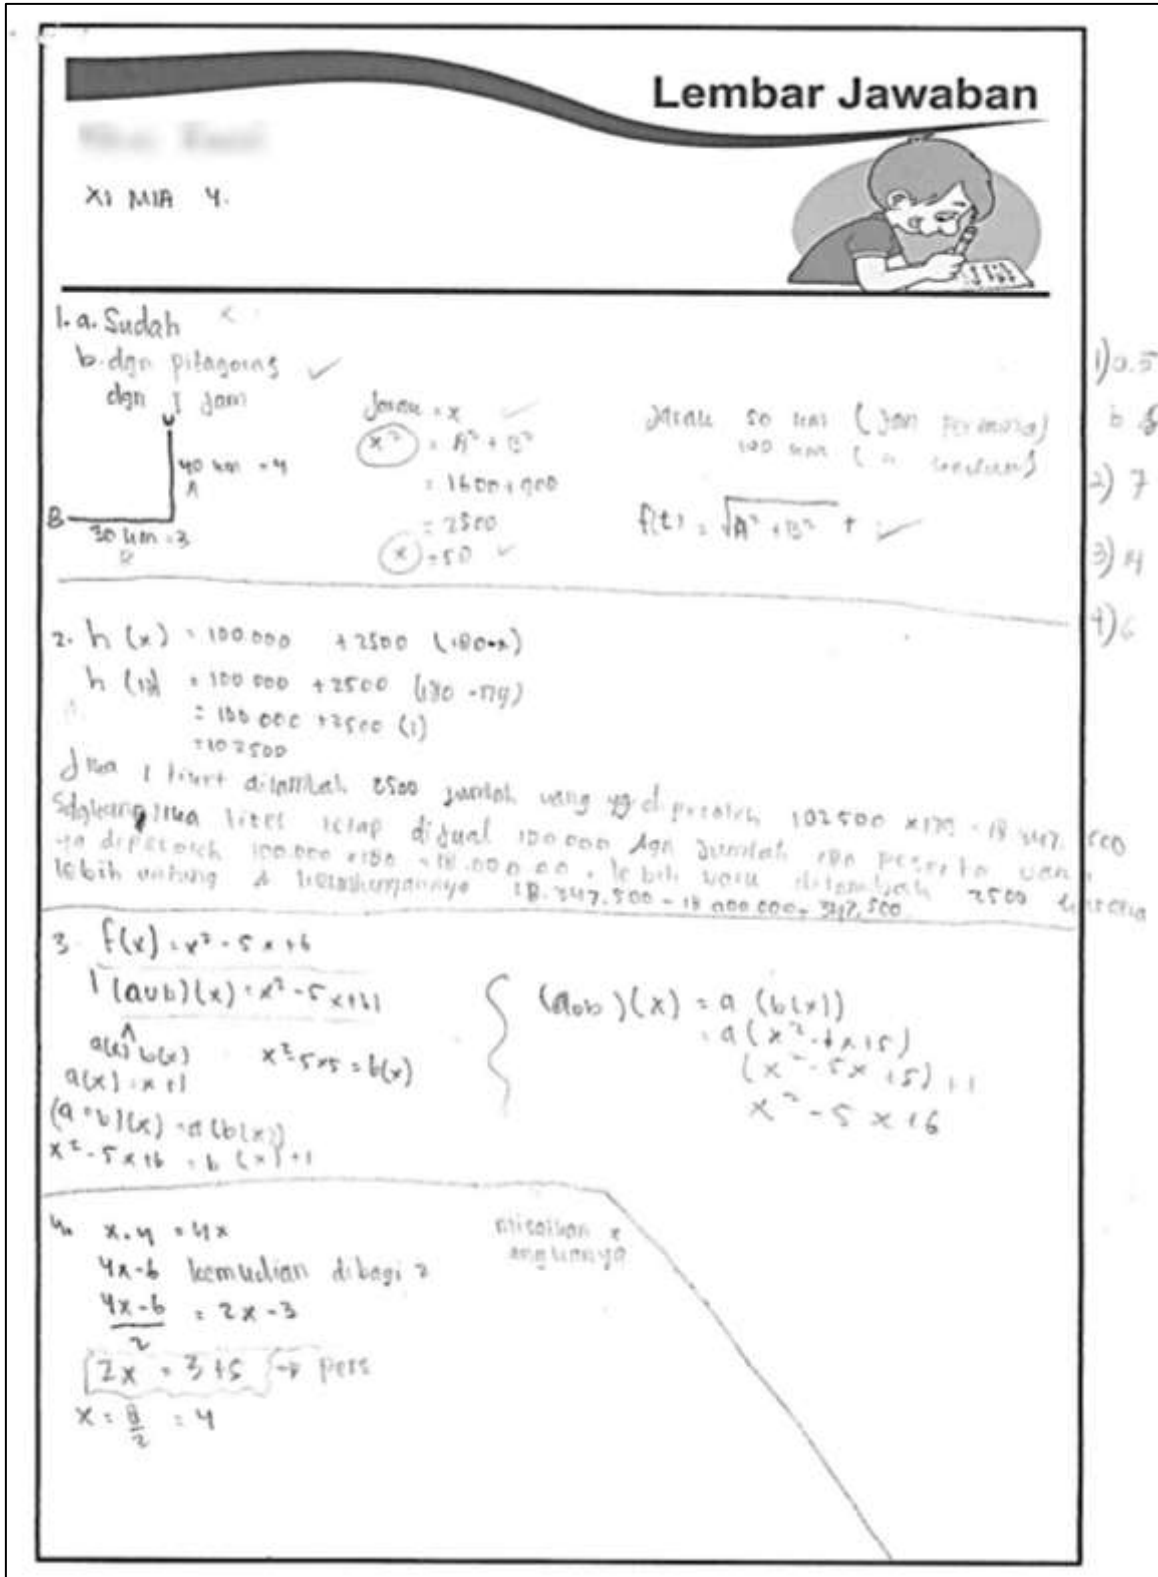 Lembar Jawaban
XI MIA 4.
1. a. Sudah
b. dgn pitagoras ✓
dgn 1 jam
40 km = 4
A
B
30 km = 3
B
Jarak = x ✓
x² = A² + B²
= 1600 + 900
= 2500
x = 50 ✓
Jarak 50 km (jam pertama)
100 km (
f(t) = √A² + B² t ✓
1) 0.5
b
2) 7
3) 14
4) 6
2. h (x) = 100.000 + 2500 (180-x)
= 100 000 + 2500 (180 - 179)
= 100 000 + 2500 (1)
= 102500
Jika 1 tiket ditambah 2500 jumlah uang yg diperoleh 102500 x 179 = 18 347. 500
jika tiket tetap dijual 100 000 dgn jumlah 180 peserta uang
yg diperoleh 100.000 x 180 = 18.000 00. lebih ditambah 2500 karena
lebih untung & keuntungannya 18.347.500 - 18 000 000 = 347.500
3. f(x) = x² - 5x + 6
(aob)(x) = x² - 5x + 6
a(x) b(x) x² - 5x 5 = b(x)
a(x) = x + 1
(a o b)(x) = a (b(x))
x² - 5x + 6 = b (x) + 1
(aob)(x) = a (b(x))
(x² - 5x + 5) + 1
x² - 5x + 6
4. x . 4 = 4x
4x - 6 kemudian dibagi 2
4x - 6 / 2 = 2x - 3
2x = 3 + 5 → pers
x = 8/2 = 4
misalkan x
angkanya